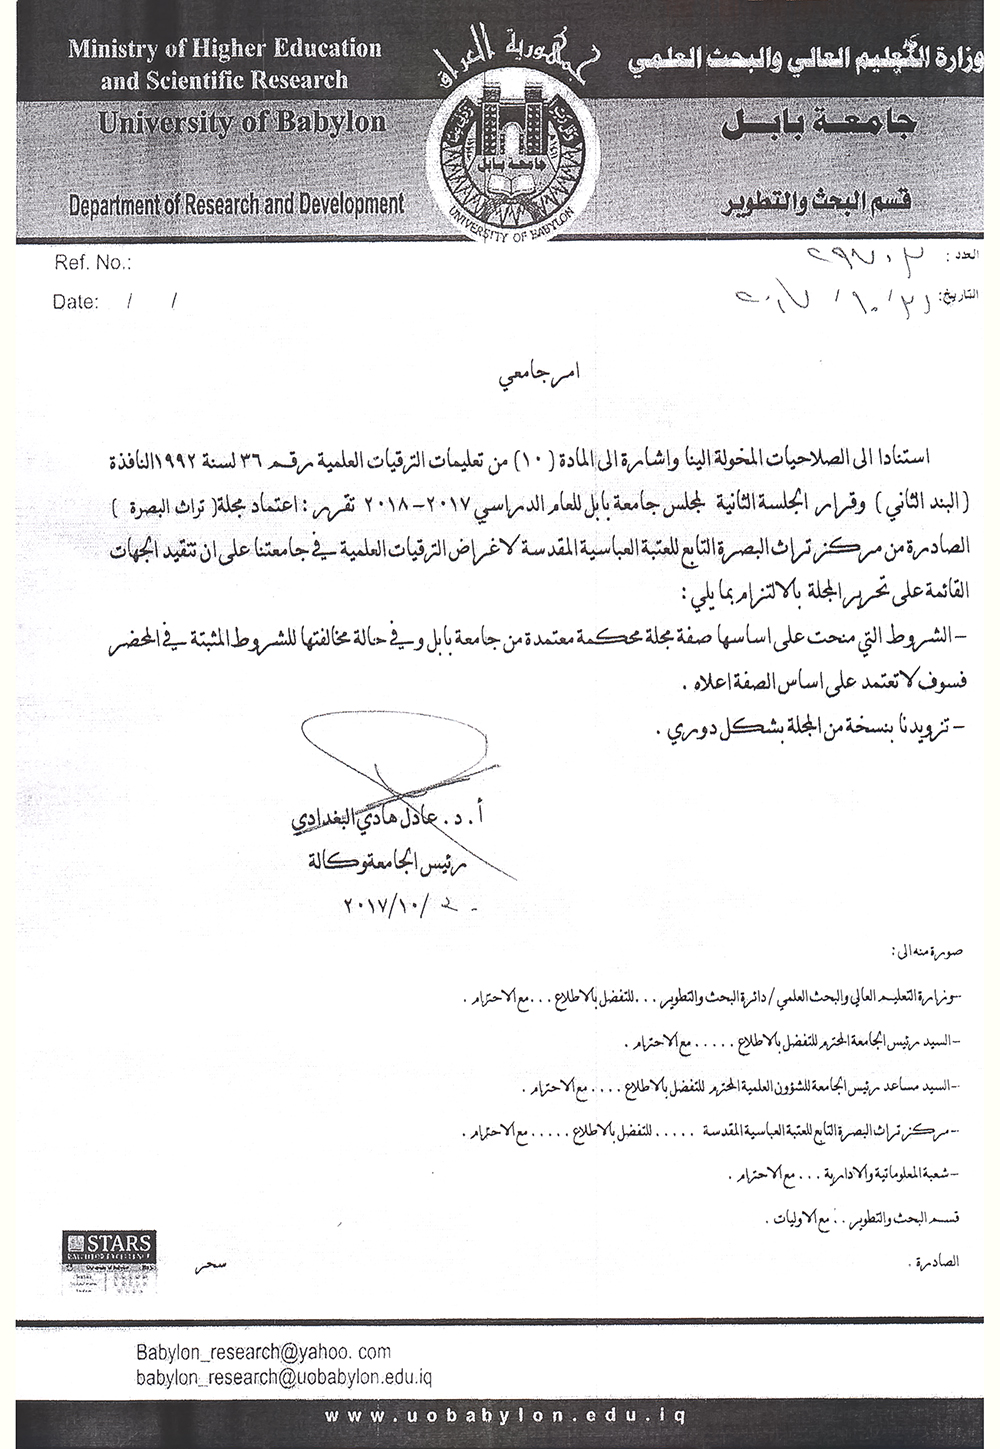 Ministry of Higher Education
and Scientific Research
University of Babylon
Department of Research and Development
جمهورية العراق
وزارة التعليم العالي والبحث العلمي
جامعة بابل
قسم البحث والتطوير
جامعة بابل
UNIVERSITY OF BABYLON
Ref. No.:
Date: / /
العدد :
التاريخ: ٢٠١٧/١٠/
امر جامعي
استنادا الى الصلاحيات المخولة الينا واشارة الى المادة (١٠) من تعليمات الترقيات العلمية رقم ٣٦ لسنة ١٩٩٢النافذة
( البند الثاني ) وقرار الجلسة الثانية لمجلس جامعة بابل للعام الدراسي ٢٠١٧-٢٠١٨ تقرر : اعتماد مجلة( تراث البصرة )
الصادرة من مركز تراث البصرة التابع للعتبة العباسية المقدسة لاغراض الترقيات العلمية في جامعتنا على ان تتقيد الجهات
القائمة على تحرير المجلة بالالتزام بما يلي :
-الشروط التي منحت على اساسها صفة مجلة محكمة معتمدة من جامعة بابل وفي حالة مخالفتها للشروط المثبتة في المحضر
فسوف لا تعتمد على اساس الصفة اعلاه .
- تزويدنا بنسخة من المجلة بشكل دوري .
أ . د . عادل هادي البغدادي
رئيس الجامعة وكالة
٢٠١٧/١٠/
صورة منه الى :
-وزارة التعليم العالي والبحث العلمي / دائرة البحث والتطوير ... للتفضل بالاطلاع ... مع الاحترام .
-السيد رئيس الجامعة المحترم للتفضل بالاطلاع ..... مع الاحترام .
-السيد مساعد رئيس الجامعة للشؤون العلمية المحترم للتفضل بالاطلاع .... مع الاحترام .
-مركز تراث البصرة التابع للعتبة العباسية المقدسة ..... للتفضل بالاطلاع ..... مع الاحترام .
-شعبة المعلوماتية والادارية ... مع الاحترام .
قسم البحث والتطوير .. مع الاوليات .
الصادرة .
سحر
STARS
Babylon_research@yahoo. com
babylon_research@uobabylon.edu.iq
www.uobabylon.edu.iq